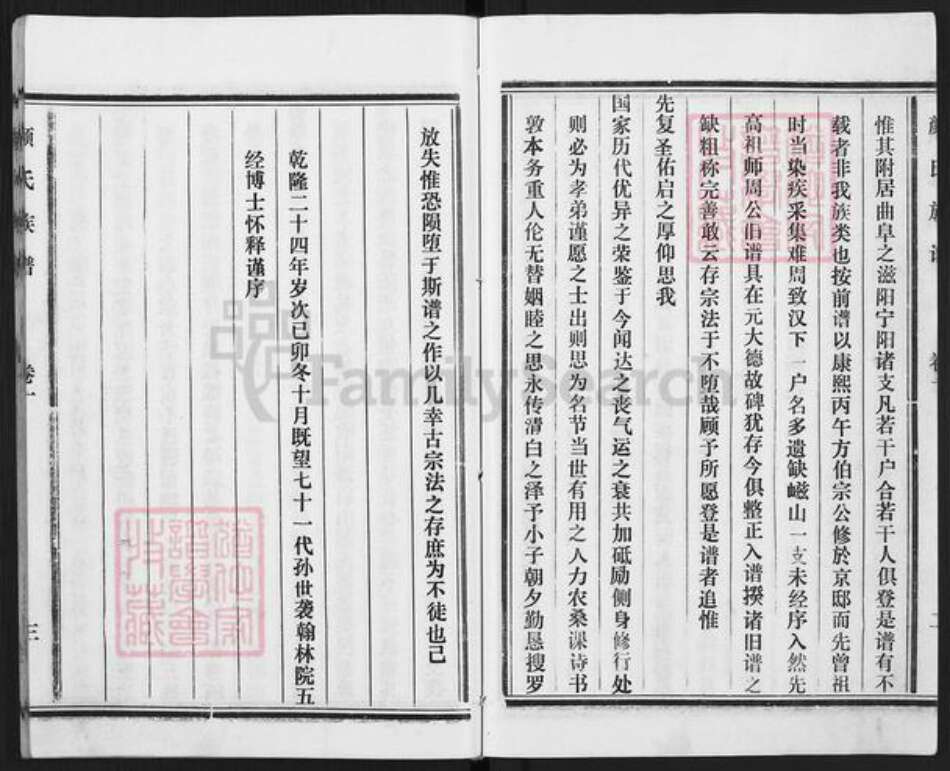 颜氏族谱
卷一
二
惟其附居曲阜之滋阳宁阳诸支凡若干户合若干人俱登是谱有不
载者非我族类也按前谱以康熙丙午方伯宗公修於京邸而先曾祖
时当染疾采集难周致汉下一户名多遗缺嵫山一支未经序入然先
高祖师周公旧谱具在元大德故碑犹存今俱整正入谱撰诸旧谱之
缺粗称完善敢云存宗法于不堕哉顾予所愿登是谱者追惟
先复圣佑启之厚仰思我
国家历代优异之荣鉴于今闻达之丧气运之衰共加砥励侧身修行处
则必为孝弟谨愿之士出则思为名节当世有用之人力农桑课诗书
敦本务重人伦无替姻睦之思永传清白之泽予小子朝夕勤恳搜罗
放失惟恐陨堕于斯谱之作以几幸古宗法之存庶为不徒也己
乾隆二十四年岁次己卯冬十月既望七十一代孙世袭翰林院五
经博士怀释谨序
颜氏族谱
卷一
三
FamilySearch